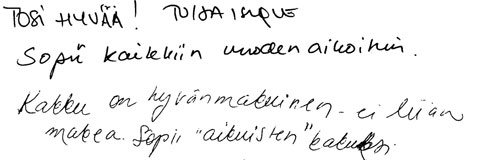 TOSI HYVÄÄ!
Sopii kaikkiin vuoden aikoihin.
Kakku on hyvänmakuinen - ei liian
makea. Sopii "aikuisten" kakuksi.